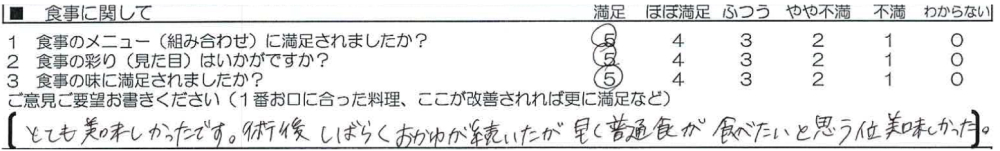 ■ 食事に関して 満足 ほぼ満足 ふつう やや不満 不満 わからない
1 食事のメニュー（組み合わせ）に満足されましたか？ 5 4 3 2 1 0
2 食事の彩り（見た目）はいかがですか？ 5 4 3 2 1 0
3 食事の味に満足されましたか？ 5 4 3 2 1 0
ご意見ご要望お書きください（１番お口に合った料理、ここが改善されれば更に満足など）
とても美味しかったです。術後しばらくおかゆが続いたが早く普通食が食べたいと思う位美味しかった。